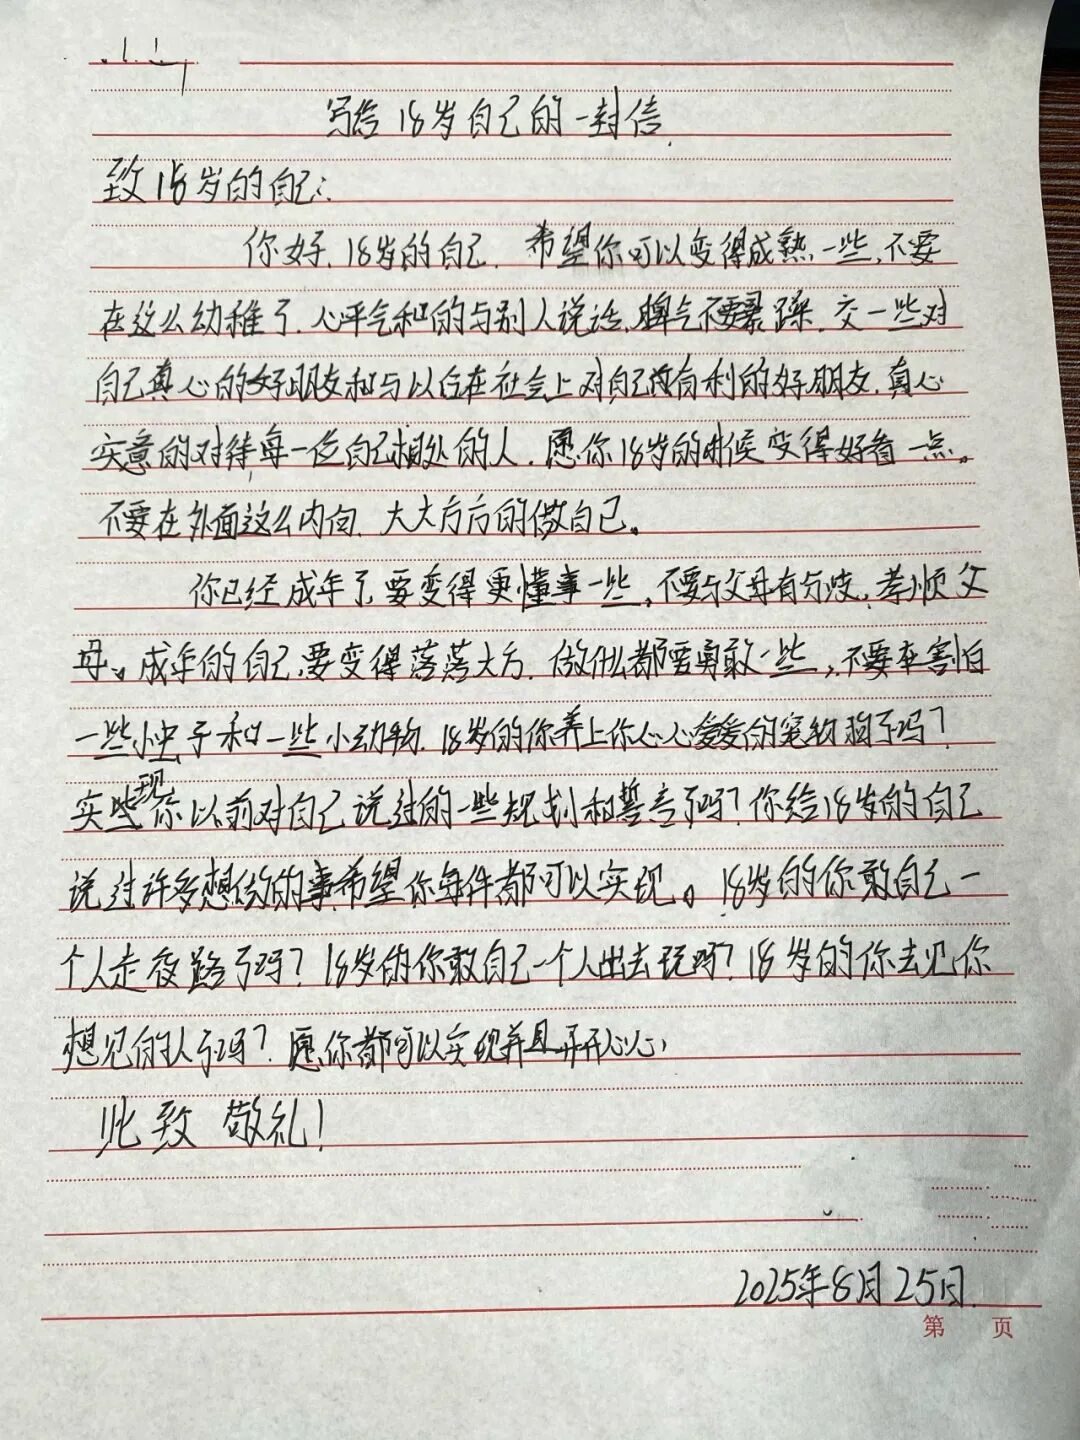 写给18岁自己的一封信
致18岁的自己:
你好,18岁的自己.希望你可以变得成熟一些,不要
在这么幼稚了.心平气和的与别人说话,脾气不要暴躁.交一些对
自己真心的好朋友和与以后在社会上对自己有利的好朋友.真心
实意的对待每一位自己相处的人.愿你18岁的时候变得好看一点。
不要在外面这么内向、大大方方的做自己。
你已经成年了,要变得更懂事一些,不要与父母有分歧,孝顺父
母。成年的自己,要变得落落大方.做什么都要勇敢一些,不要在害怕
一些小虫子和一些小动物.18岁的你养上你心心爱爱的宠物狗了吗?
实现些你以前对自己说过的一些规划和誓言了吗?你给18岁的自己
说过许多想做的事希望你每件都可以实现。18岁的你敢自己一
个人走夜路了吗?18岁的你敢自己一个人出去玩吗?18岁的你去见你
想见的人了吗?愿你都可以实现并且开开心心
此致 敬礼!
2025年8月25日.
第 页